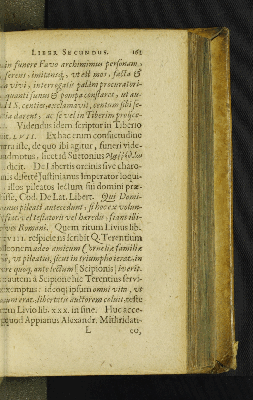 LIBER SECUNDUS. 161
in funere Favo archimimus personam,
ferens, imitansq, ut est mos, facta &
vivi, interrogatis palàm procuratori-
quanti funus & pompa constaret, ut au-
HS. centies, exclamavit, centum sibi se-
daret, ac se vel in Tiberim projice-
Videndus idem scriptor in Tiberio
LVII. Ex hac enim consuetudine
iste, de quo ibi agitur, funeri vide-
admotus, licet id Suetonius
dicit. De Libertis orcinis sive charo-
disertè Justinianus Imperator loqui-
illos pileatos lectum sui domini præ-
isse, Cod. De Lat. Libert. Qui Domi-
funus pileati antecedunt, si hoc ex volun-
vel testatoris vel haredis, fiant illi-
Romani. Quem ritum Livius lib.
XVIII. respiciens scribit Q. Terentium
eonem virum amicum Corneliæ familiæ
ut pileatus, sicut in triumpho ierat, in
quoq, ante lectum [Scipionis] iverit.
autem à Scipione hic Terentius servi-
exemptus: ideoq; ipsum omni vita, ut
erat, libertatis auctorem coluit, teste
Livio lib. XXX. in fine. Huc acce-
quod Appianus Alexandr. Mithridati-
L co,